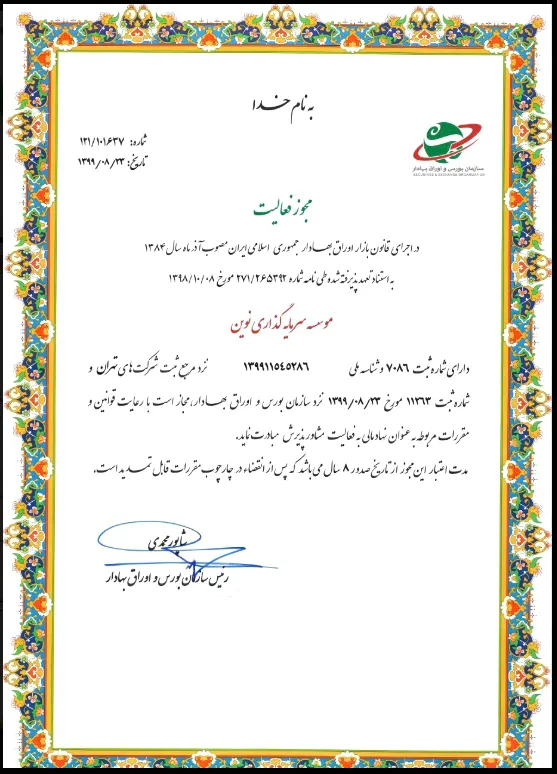 به نام خدا
شماره: ۱۲۱/۱۰۱۶۳۷
تاریخ: ۱۳۹۹/۰۸/۲۳
سازمان بورس و اوراق بهادار
SECURITIES & EXCHANGE ORGANIZATION
مجوز فعالیت
در اجرای قانون بازار اوراق بهادار جمهوری اسلامی ایران مصوب آذر ماه سال ۱۳۸۴
به استناد تعهد پذیرفته شده طی نامه شماره ۲۷۱/۲۶۵۳۹۲ مورخ ۱۳۹۸/۱۰/۰۸
موسسه سرمایه گذاری نوین
دارای شماره ثبت ۷۰۸۶ و شناسه ملی ۱۳۹۹۱۱۵۴۵۲۸۶ نزد مرجع ثبت شرکت های تهران و
شماره ثبت ۱۱۳۶۳ مورخ ۱۳۹۹/۰۸/۲۳ نزد سازمان بورس و اوراق بهادار، مجاز است با رعایت قوانین و
مقررات مربوطه به عنوان نهاد مالی به فعالیت مشاور پذیرش مبادرت نماید.
مدت اعتبار این مجوز از تاریخ صدور ۸ سال می باشد که پس از انقضاء در چارچوب مقررات قابل تمدید است.
شاپور محمدی
رئیس سازمان بورس و اوراق بهادار